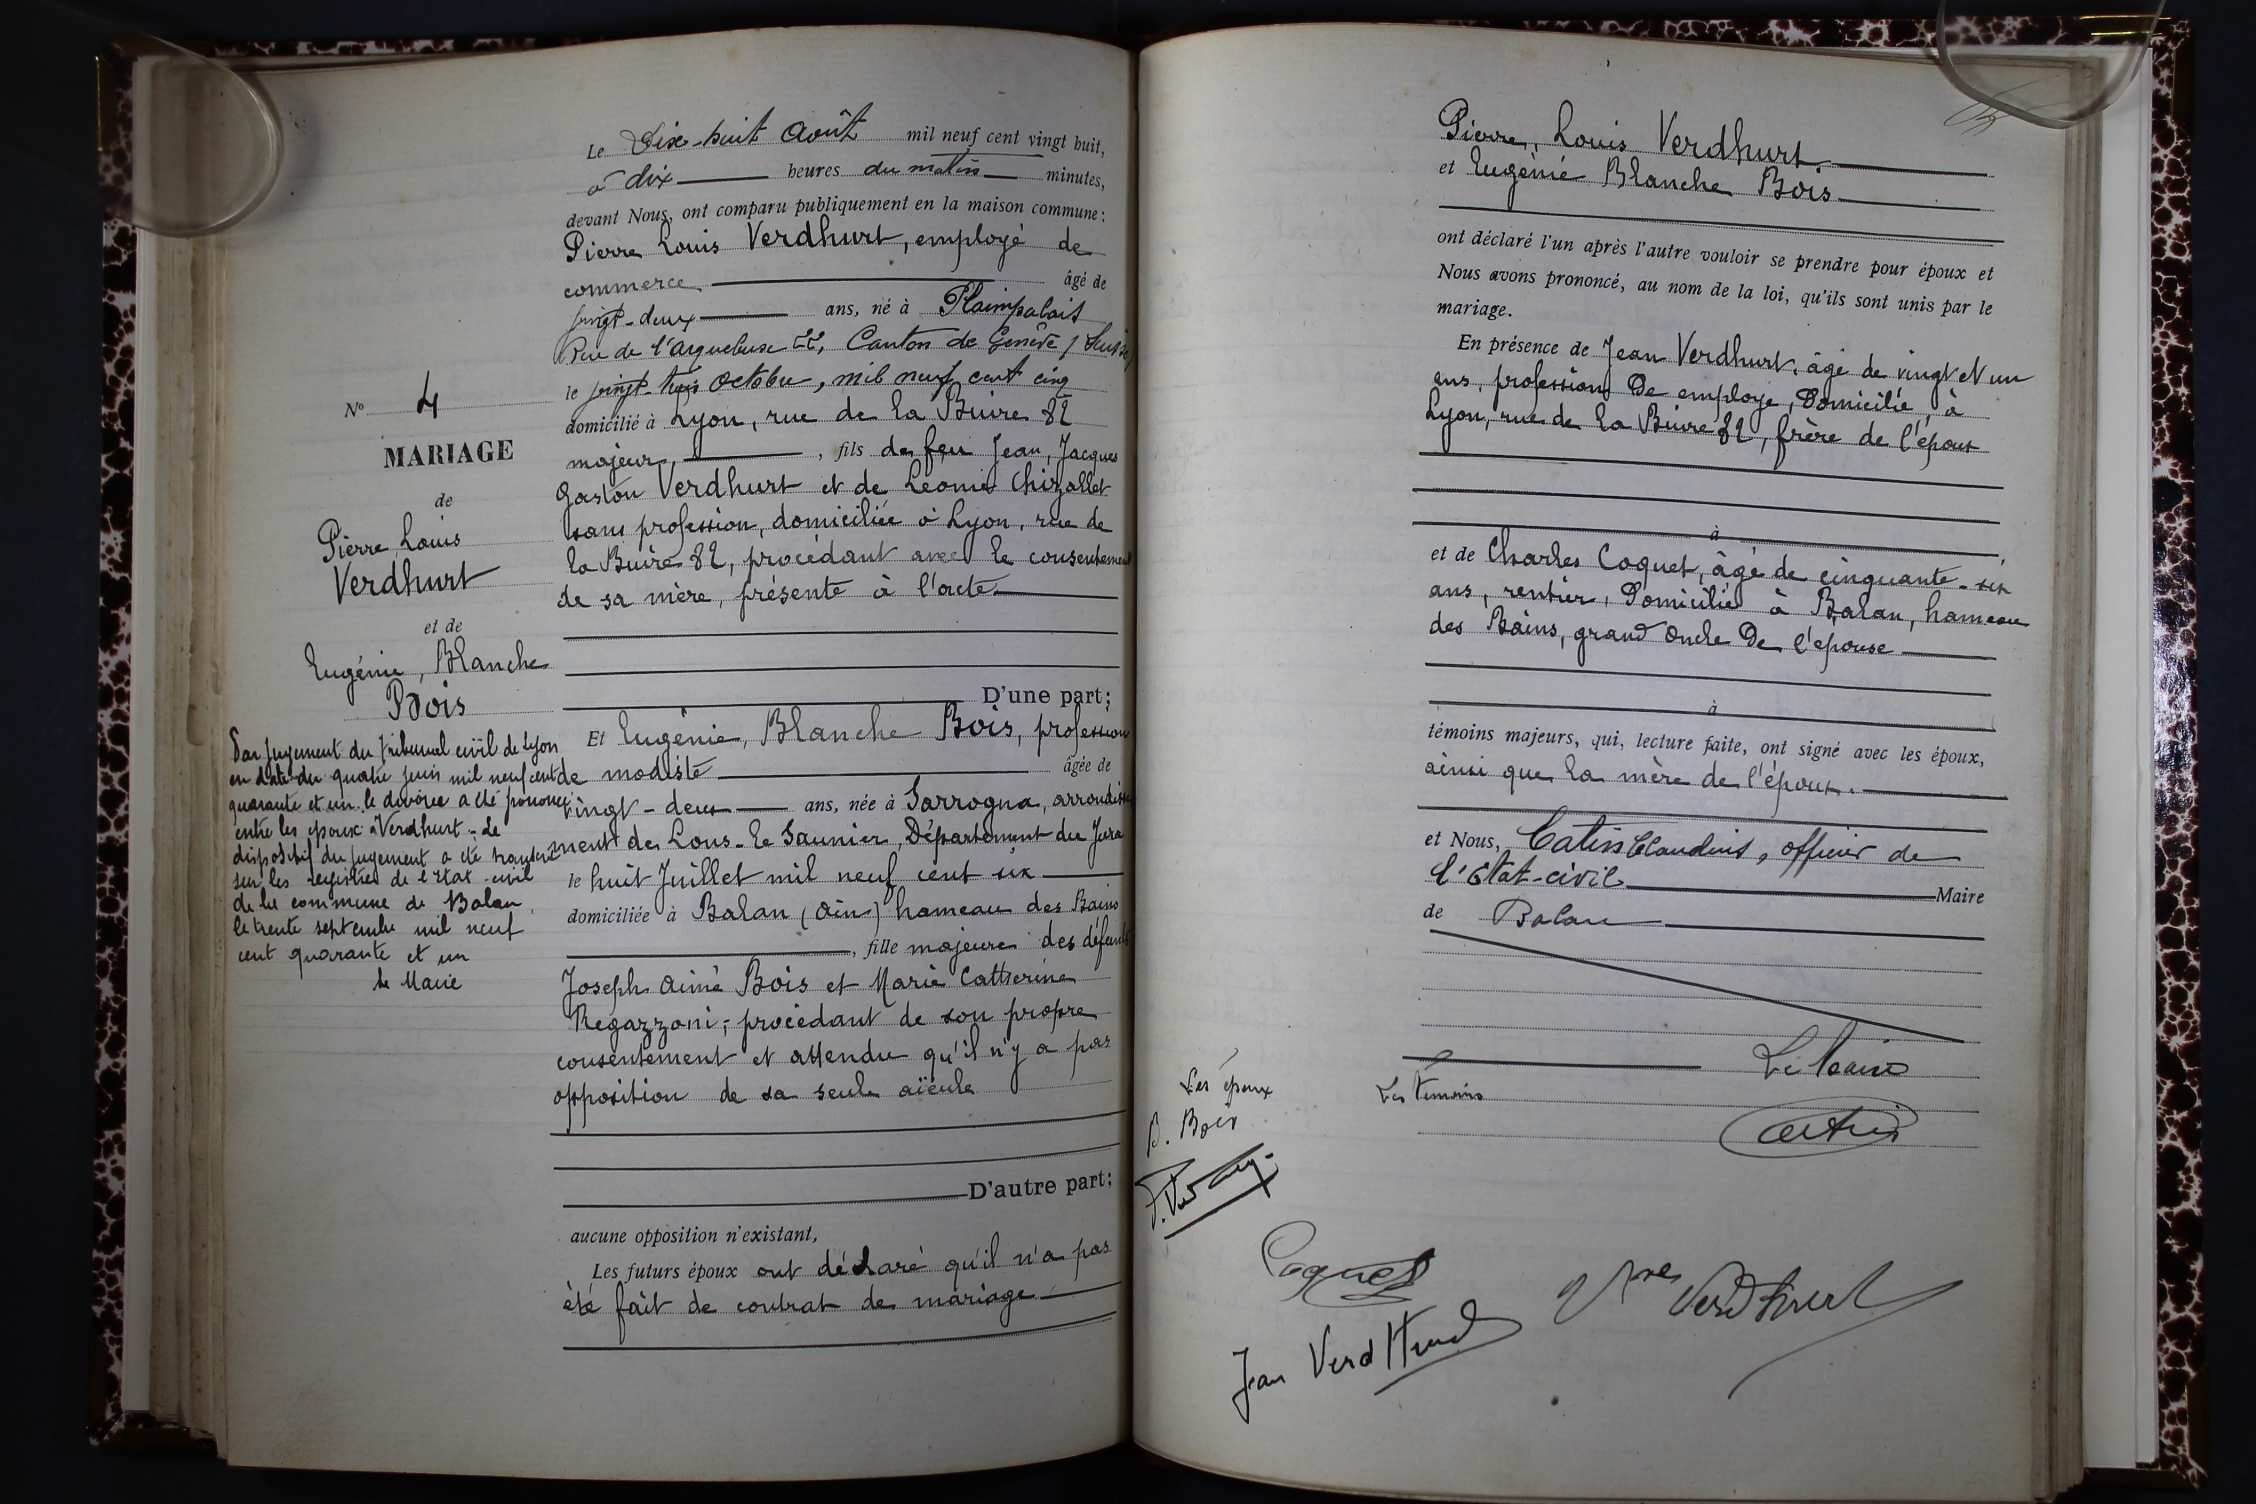 N° 4
MARIAGE
de
Pierre Louis
Verdhurt
et de
Eugénie, Blanche
Bois
Par jugement du tribunal civil de Lyon
en date du quatre juin mil neuf cent
quarante et un le divorce a été prononcé
entre les époux Verdhurt - Le
dispositif du jugement a été transcrit
sur les registres de l'état civil
de la commune de Balan
le trente septembre mil neuf
cent quarante et un
Le Maire
Le Dix-huit Août mil neuf cent vingt huit,
à dix heures du matin minutes,
devant Nous, ont comparu publiquement en la maison commune :
Pierre Louis Verdhurt, employé de
commerce, âgé de
vingt-deux ans, né à Plaimpalais
Rue de l'Arquebuse 22, Canton de Genève (Suisse)
le vingt-trois Octobre, mil neuf cent cinq
domicilié à Lyon, rue de la Buire 82
majeur, , fils de feu Jean, Jacques
Gaston Verdhurt et de Léonie Chizallet
sans profession, domiciliée à Lyon, rue de
la Buire 82, procédant avec le consentement
de sa mère, présente à l'acte.
D'une part;
Et Eugénie, Blanche Bois, profession
de modiste âgée de
vingt-deux ans, née à Sarrogna, arrondisse
ment de Lons-le Saunier, Département du Jura
le huit Juillet mil neuf cent six
domiciliée à Balan (Ain) hameau des Bains
, fille majeure des défunts
Joseph Aimé Bois et Marie Catherine
Regazzoni, procédant de son propre
consentement et attendu qu'il n'y a pas
opposition de sa seule aïeule
D'autre part;
aucune opposition n'existant,
Les futurs époux ont déclaré qu'il n'a pas
été fait de contrat de mariage
Pierre, Louis Verdhurt
et Eugénie Blanche Bois
ont déclaré l'un après l'autre vouloir se prendre pour époux et
Nous avons prononcé, au nom de la loi, qu'ils sont unis par le
mariage.
En présence de Jean Verdhurt, âgé de vingt et un
ans, profession de employe, Domicilié, à
Lyon, rue de la Buire 82, frère de l'époux
à
et de Charles Coquet, âgé de cinquante-six
ans, rentier, Domicilié à Balan, hameau
des Bains, grand Oncle De l'epouse
à
témoins majeurs, qui, lecture faite, ont signé avec les époux,
ainsi que la mère de l'époux.
et Nous, Catin Claudius, officier de
l'Etat-civil Maire
de Balan
Le Maire
Les Témoins
Catin
Les époux
B. Bois
Coquet
Vve Verdhurt
Jean VerdHurt